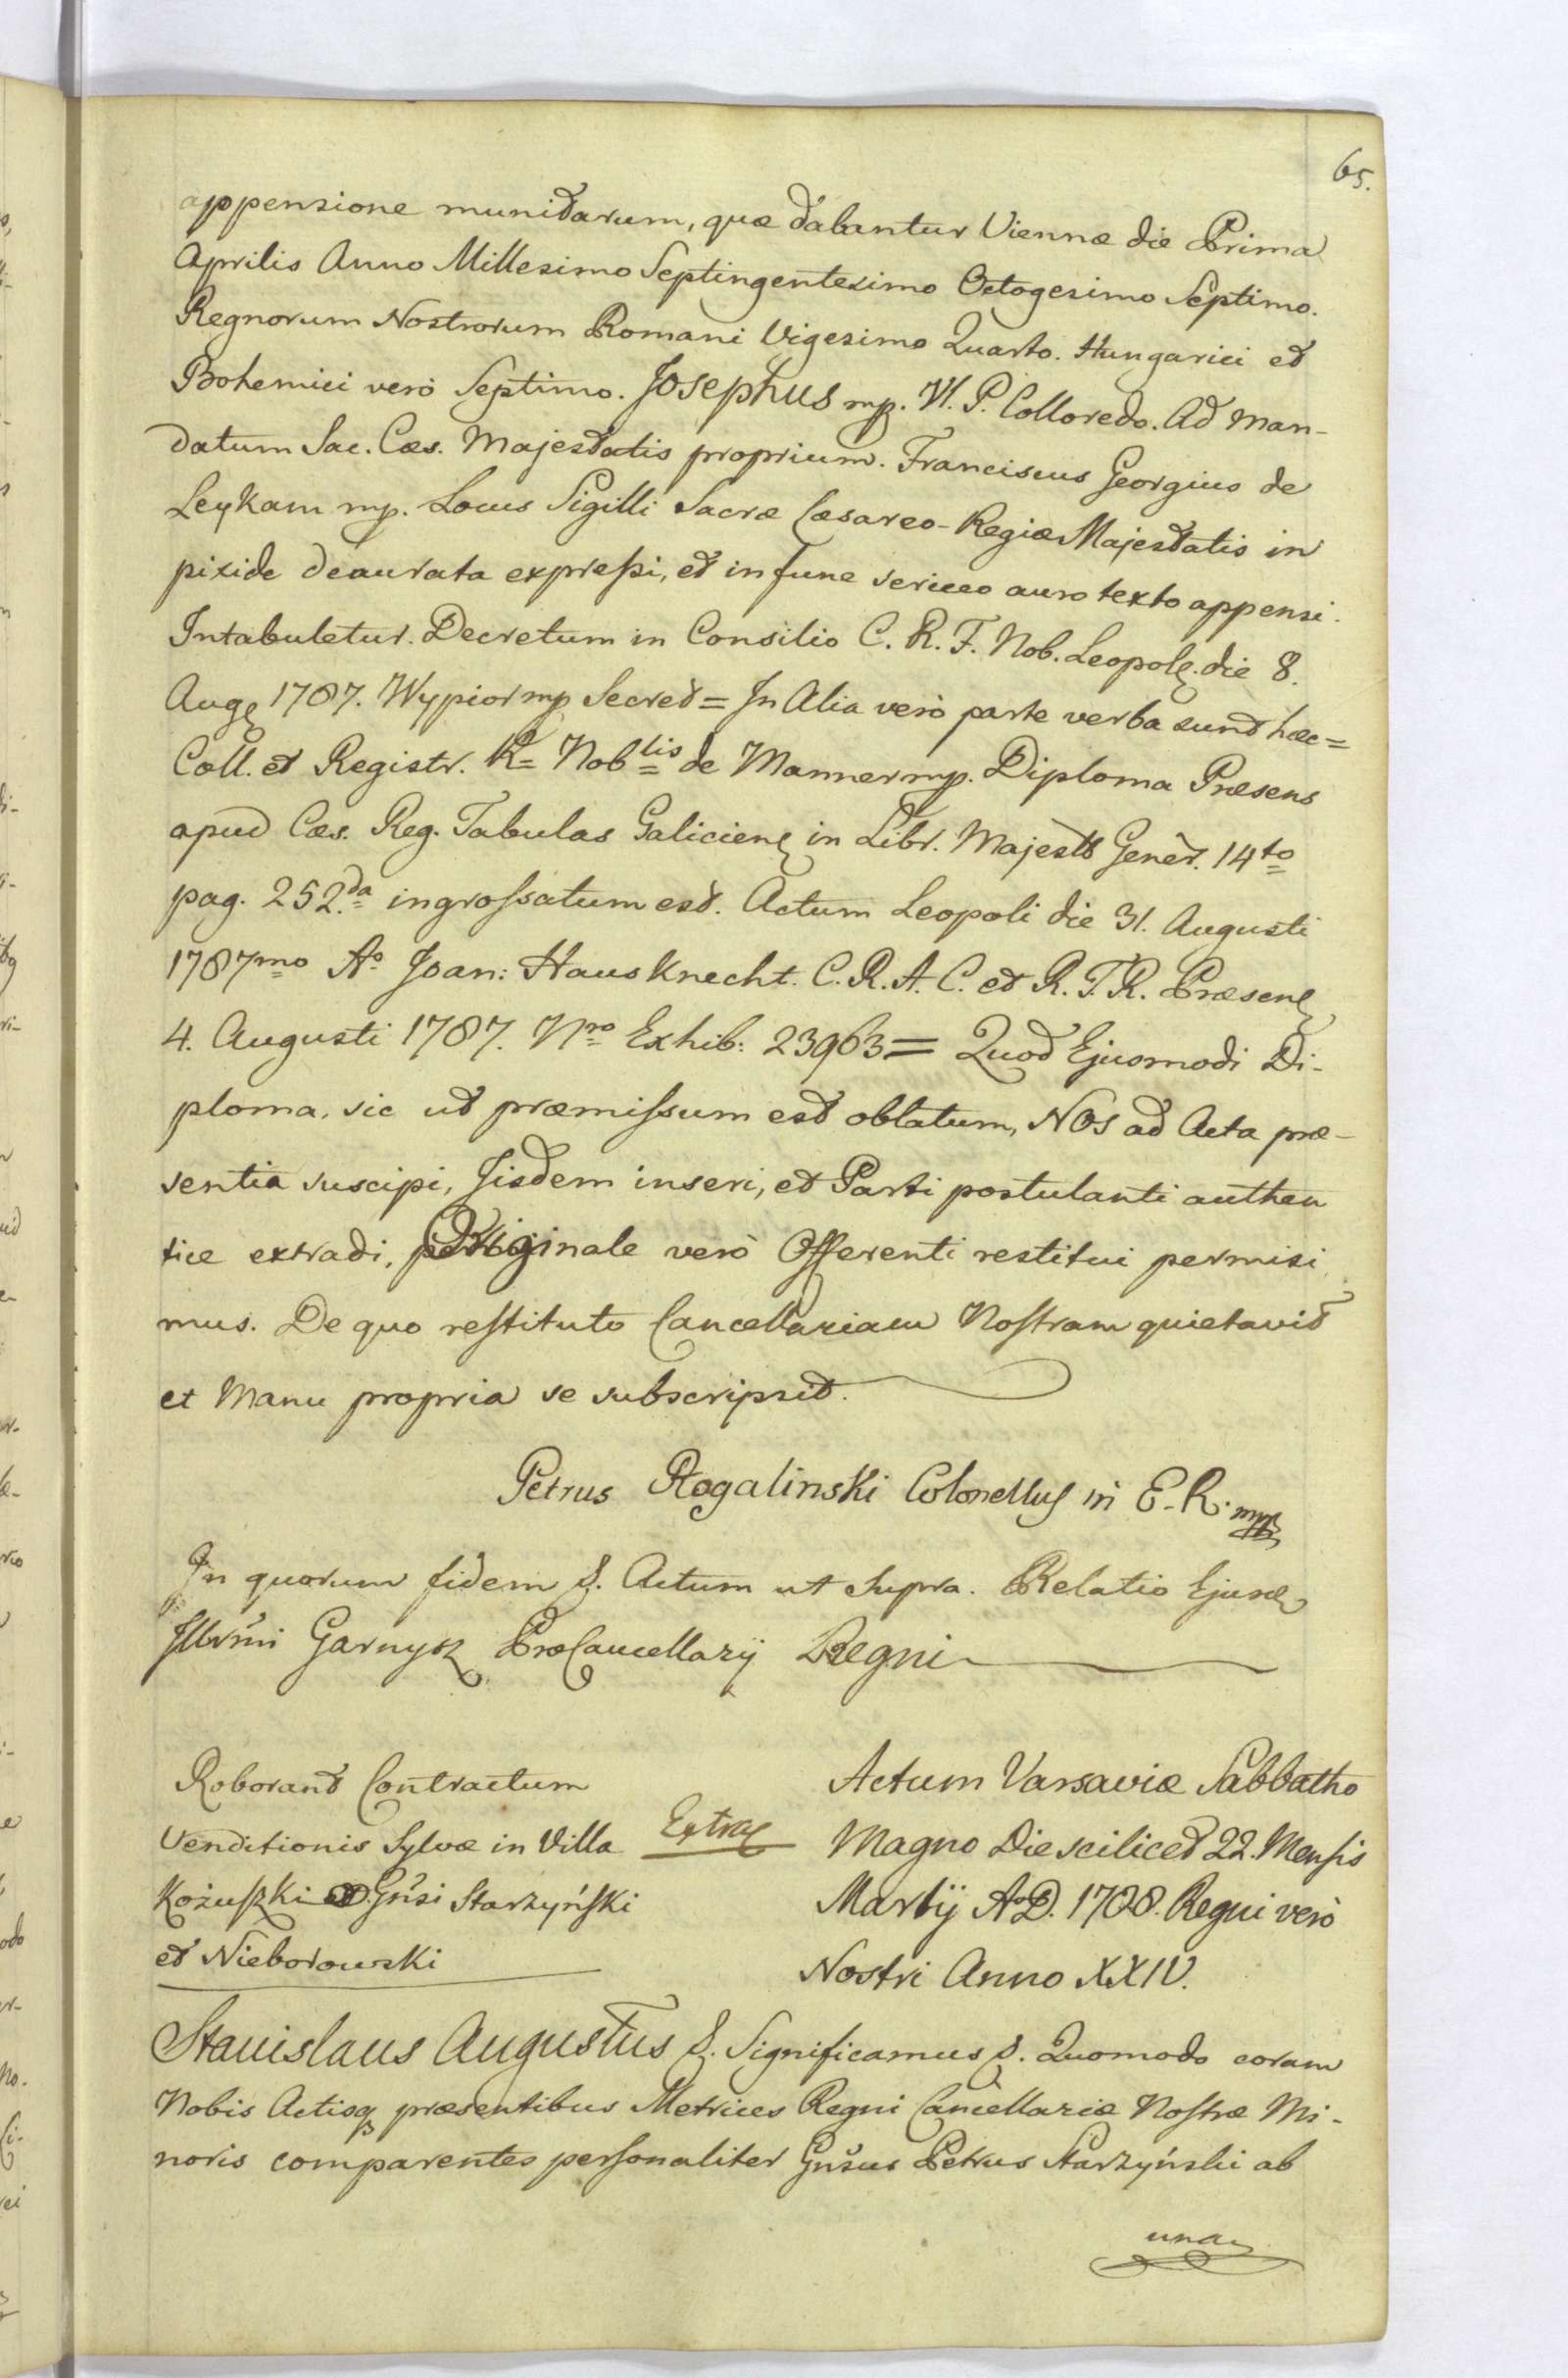 65.
appensione munitarum, quæ dabantur Viennæ die Prima
Aprilis Anno Millesimo Septingentesimo Octogesimo Septimo.
Regnorum Nostrorum Romani Vigesimo Quarto. Hungarici et
Bohemici verò Septimo. Josephus mp. Vt. P. Colloredo. Ad Man-
datum Sac. Cæs. Majestatis proprium. Franciscus Georgius de
Leykam mp. Locus Sigilli Sacræ Cæsareo-Regiæ Majestatis in
pixide deaurata expressi, et in fune sericeo auro texto appensi.
Intabuletur. Decretum in Consilio C. R. F. Nob. Leopol. die 8.
Aug 1787. Wypior mp Secret = In Alia verò parte verba sunt hæc =
Coll. et Registr. R= Nobtis de Manner mp. Diploma Præsens
apud Cæs. Reg. Tabulas Galicien in Libr. Majest Genèr. 14to
pag. 252da ingrossatum est. Actum Leopoli die 31. Augusti
1787mo Ao Joan: Hausknecht. C. R. A. C. et R. T. R. Præsen
4. Augusti 1787. Nro Exhib: 23963 = Quod Ejusmodi Di-
ploma, sic ut præmissum est oblatum, NOS ad Acta præ-
sentia suscipi, Iisdem inseri, et Parti postulanti authen
tice extradi, Originale verò Offerenti restitui permisi
mus. De quo restituto Cancellariam Nostram quietavit
et Manu propria se subscripsit.
Petrus Rogalinski Colonellus in E. R. mp
In quorum fidem &. Actum ut supra. Relatio Ejusd
Illrmi Garnysz ProCancellarij Regni
Roborant Contractum
Venditionis Sylvæ in Villa
Kożuszki Gnsi Starzyński
et Nieborowski
Extra
Actum Varsaviæ Sabbatho
Magno Die scilicet 22. Mensis
Martij A. D. 1788. Regni verò
Nostri Anno XXIV.
Stanislaus Augustus &. Significamus &. Quomodo coram
Nobis Actisq præsentibus Metrices Regni Cancellariæ Nostræ Mi-
noris comparentes personaliter Gnsus Petrus Starzyński ab
una